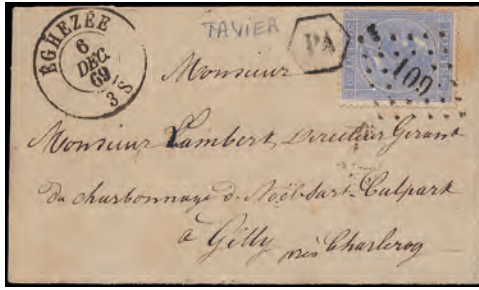 ÉGHEZÉE
6
DEC.
69
3 S
TAVIER
PA
109
Monsieur
Monsieur Lambert, Directeur Gérant
du charbonnage de Noël-Sart-Culpart
à Gilly près Charleroy